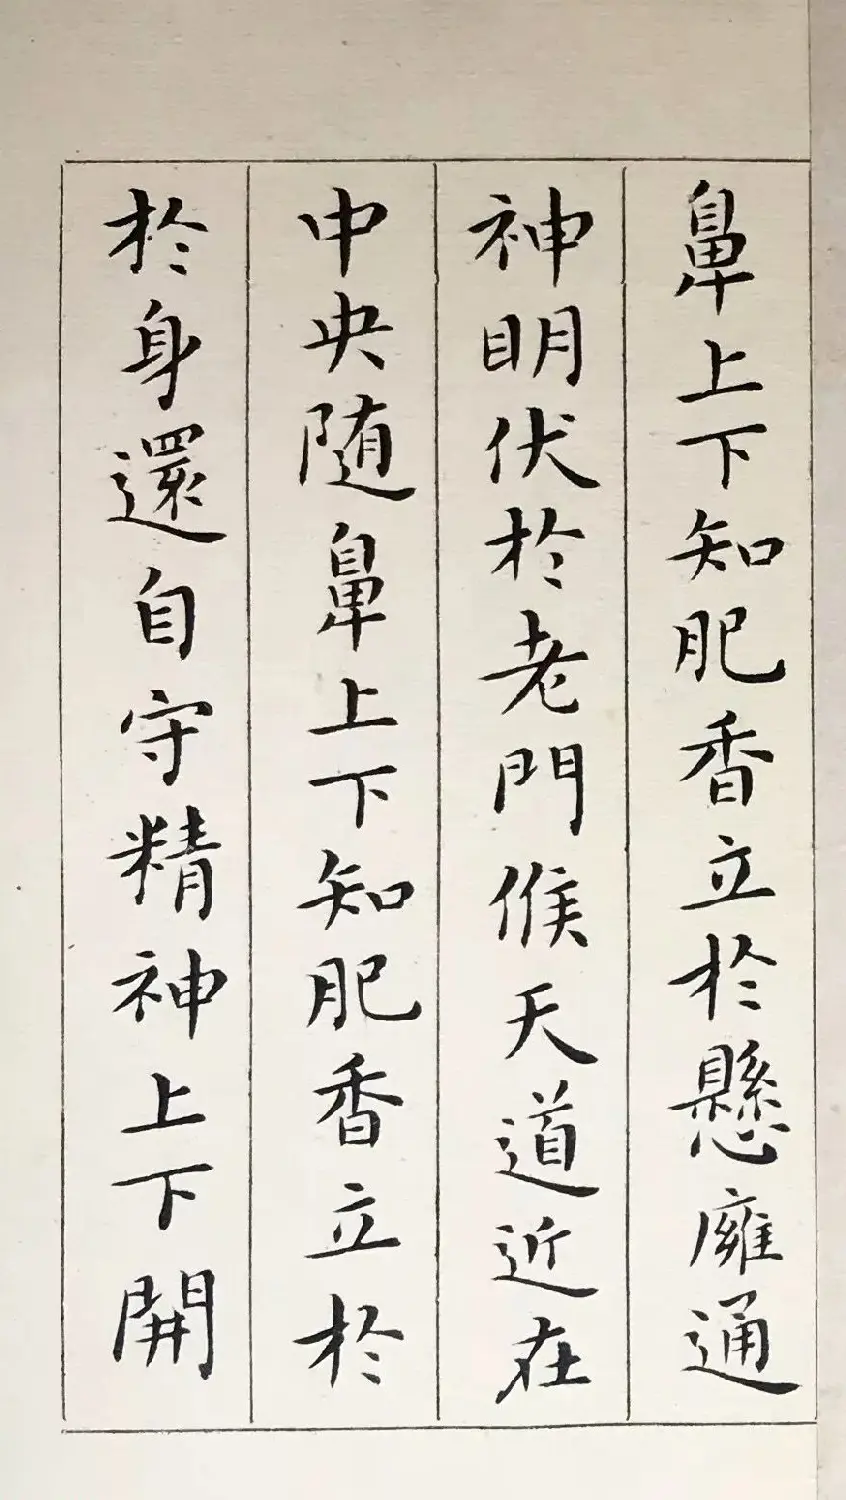 鼻上下知肥香立於懸廱通
神明伏於老門候天道近在
中央随鼻上下知肥香立於
於身還自守精神上下開